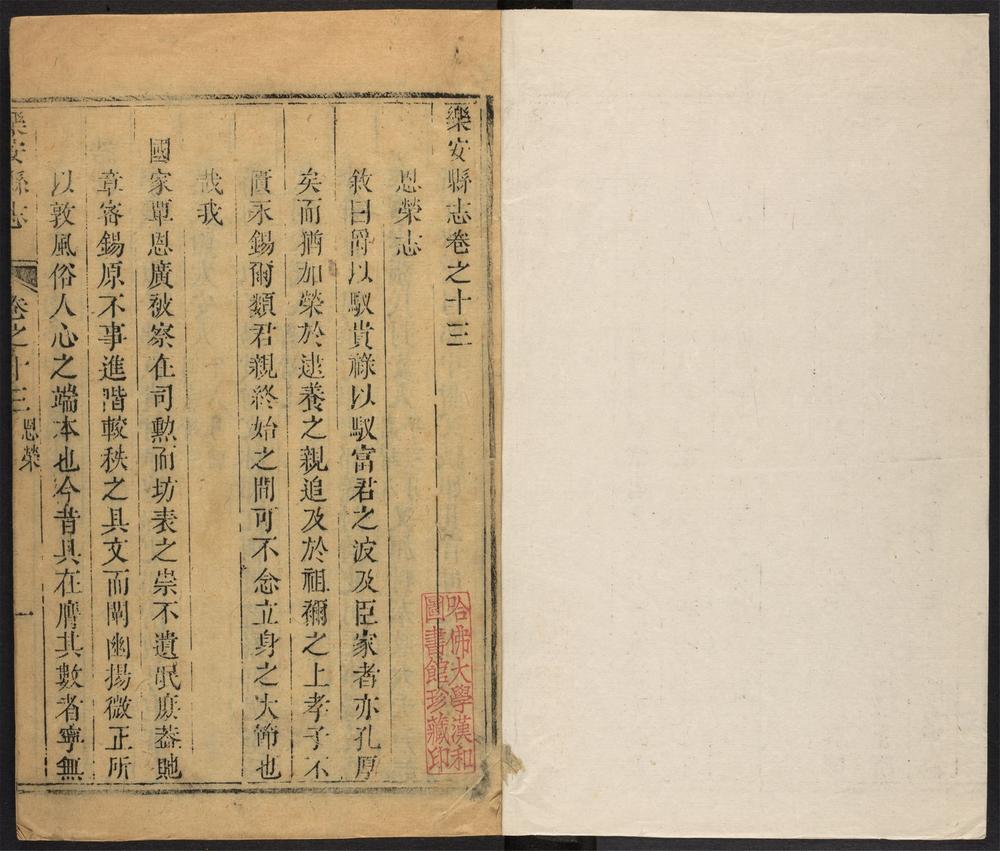 樂安縣志卷之十三
恩榮志
敘曰爵以馭貴祿以馭富君之波及臣家者亦孔厚
矣而猶加榮於逮養之親追及於祖禰之上孝子不
匱永錫爾類君親終始之間可不念立身之大節也
哉我
國家覃恩廣被察在司勲而坊表之崇不遺氓庶葢貤
章審錫原不事進階較秩之具文而闡幽揚微正所
以敦風俗人心之端本也今昔具在膺其數者寧無
樂安縣志 卷之十三 恩榮 一
哈佛大學漢和
圖書館珍藏印